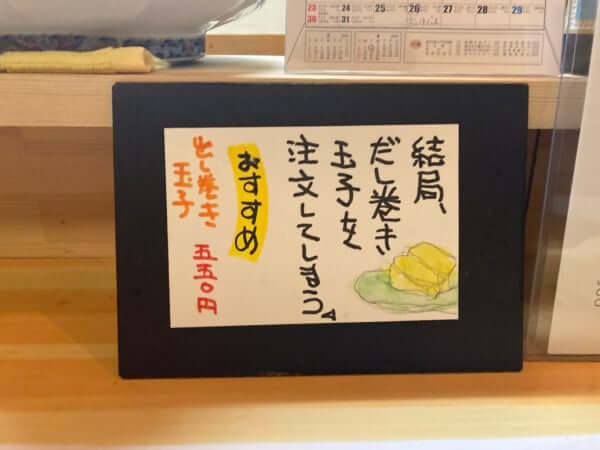 結局、
だし巻き
玉子を
注文してしまう。
おすすめ
出し巻き
玉子
五五〇円
23 24 25 26 27 28 29
30 31